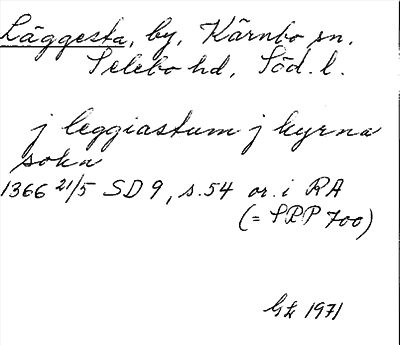 Läggesta, by, Kärnbo sn.
Selebo hd, Söd. l.
j leggiastum j kyrna
sokn
1366 21/5 SD 9, s.54 or. i RA
(= SRP 700)
1971